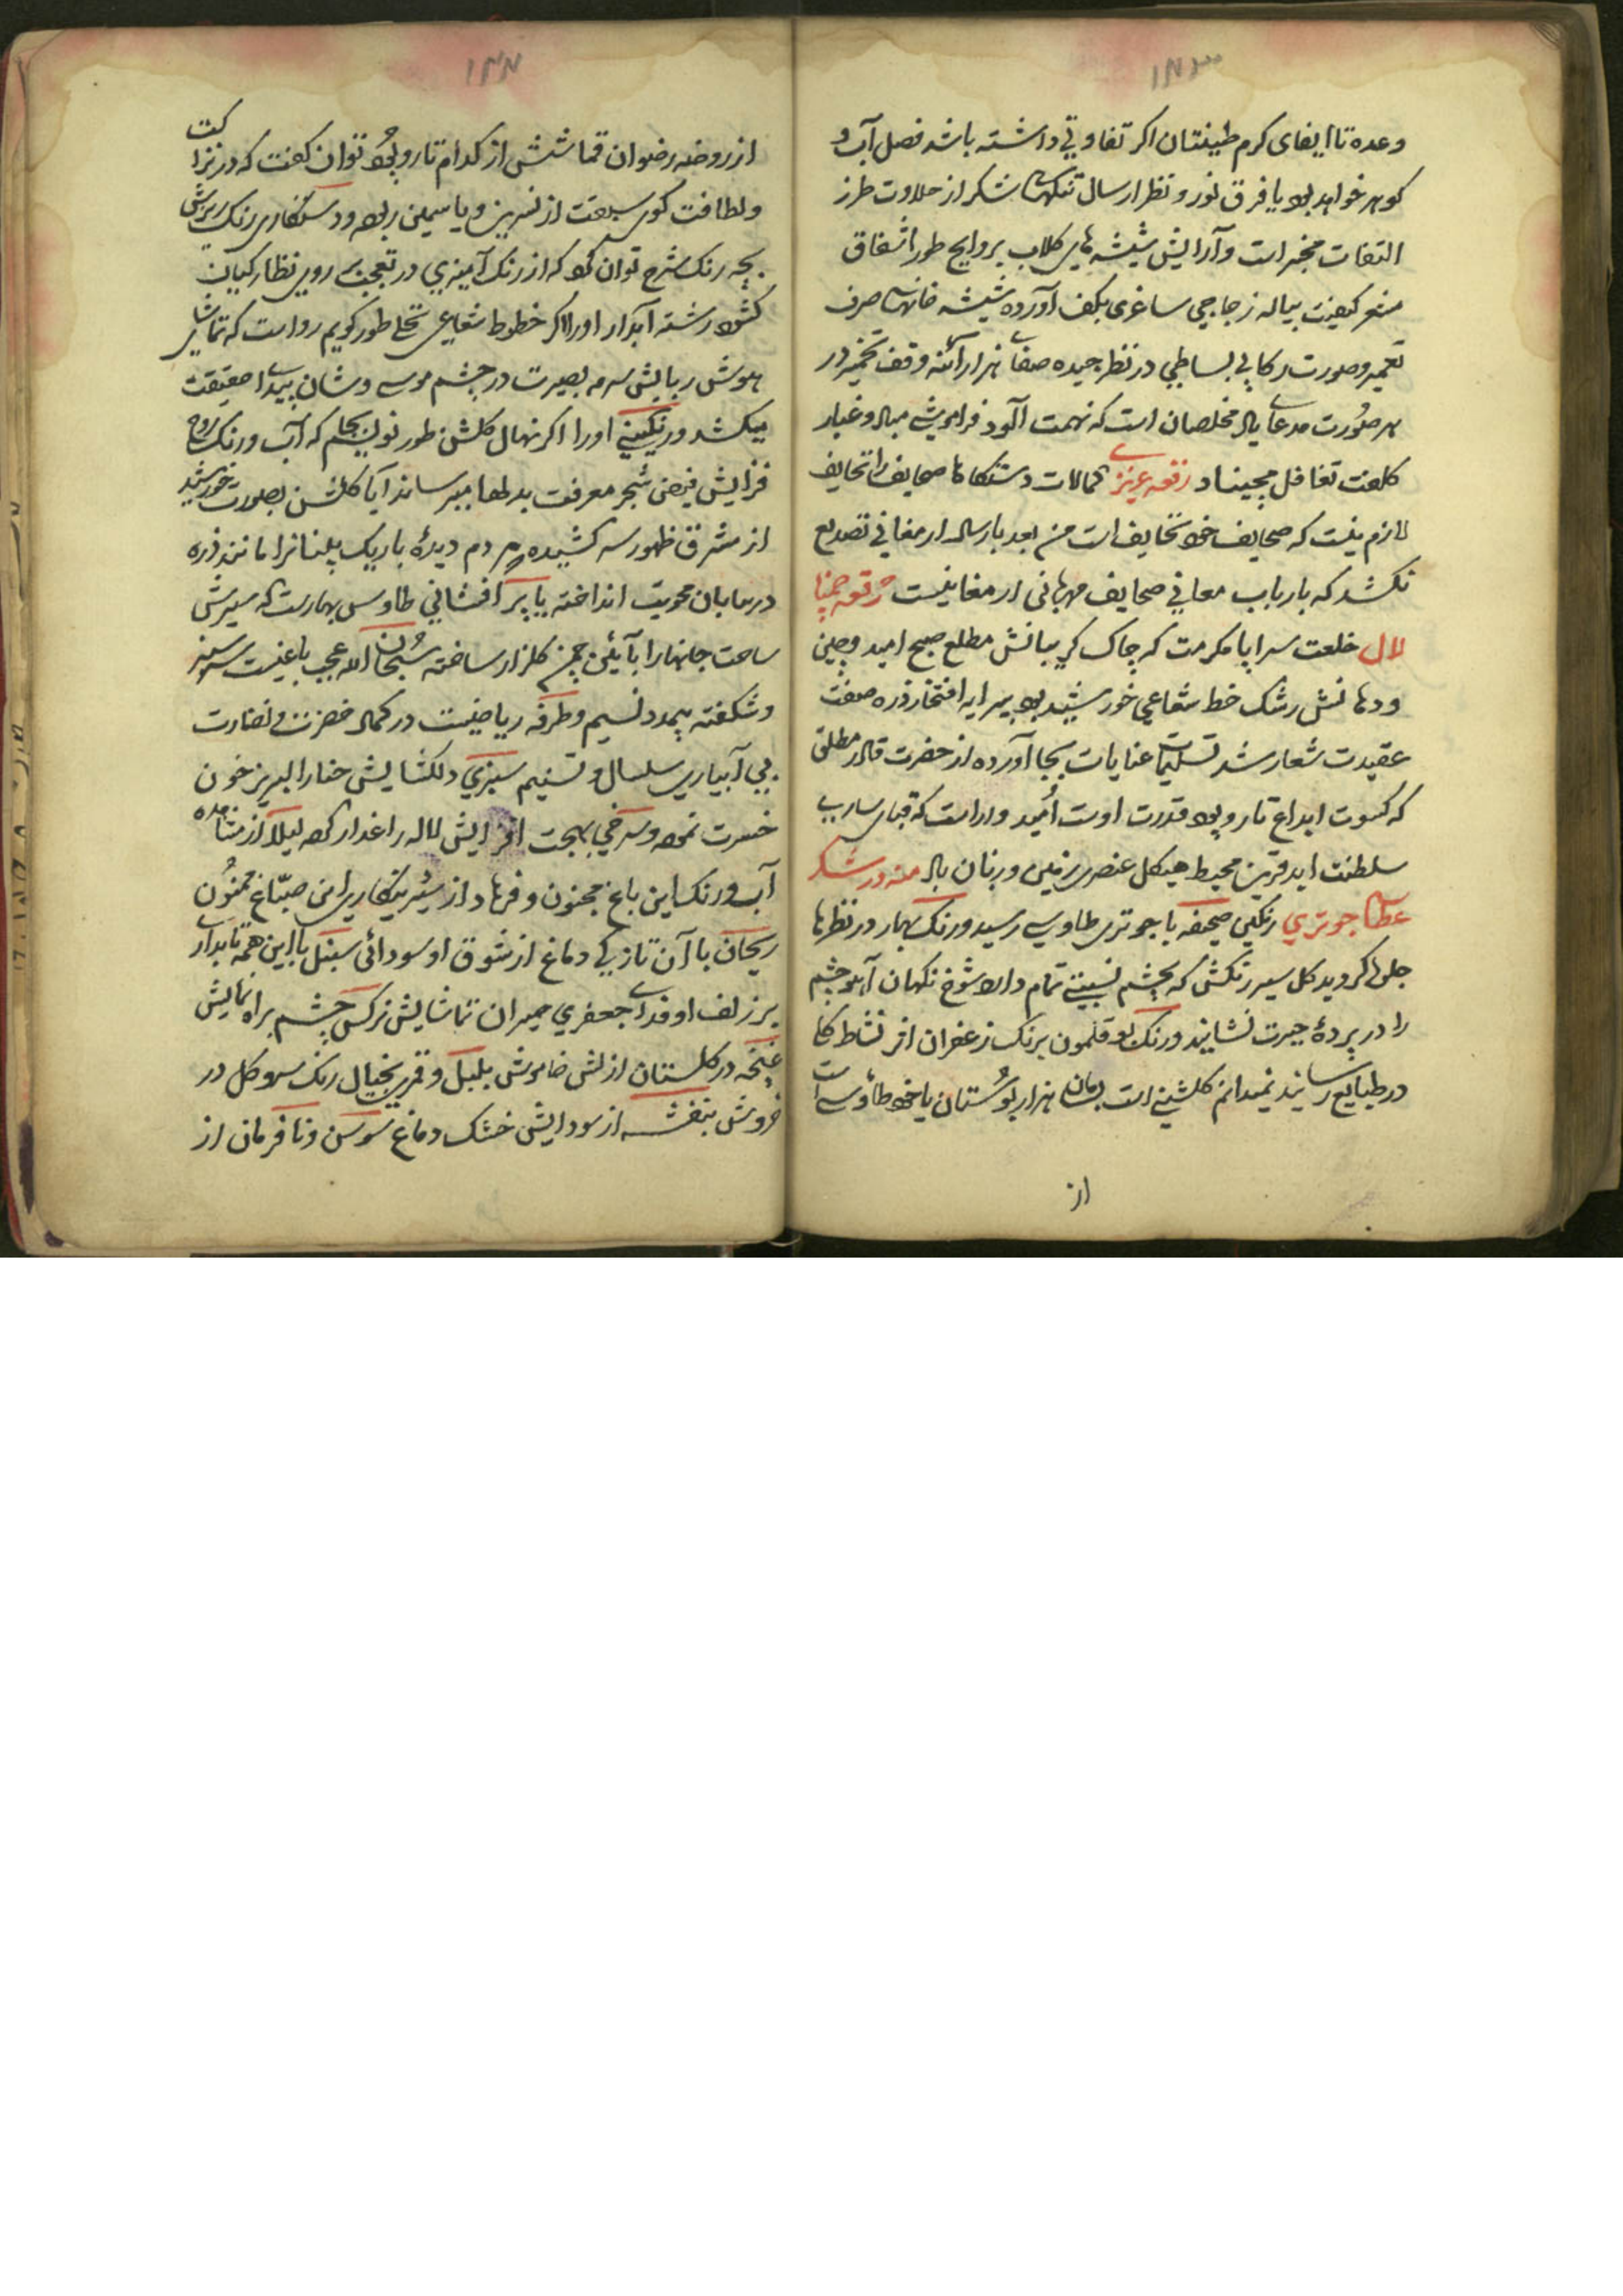 ۱۴۳
وعده تا ایفای کرم طینتان اکر تفاوتی داشته باشد فصل آب و
کوهر خواهد بود یا فرق نور و نظر ارسال تنکهای شکر از حلاوت طرز
التفات مخبر است و آرایش شیشه های کلاب بروایح طور اشفاق
مشعر کیفیت پیاله زجاجی ساغری بکف آورده شیشه خانهای صرف
تعمیر و صورت رکابی بساطی در نظر چیده صفای هزار آئنه وقف تخمیر در
هر صورت مدعای مخلصان است که تهمت آلود فراموشی مباد و غبار
کلفت تغافل مچیناد رقعه عزیز کمالات دستکاها صحایف را تحایف
لازم نیست که صحایف خود تحایف است من بعد بارسال ارمغانی تصدیع
نکشد که بارباب معانی صحایف مهربانی ارمغانیست رقعه چنپا
لال خلعت سراپا مکرمت که چاک کریبانش مطلع صبح امید و چین
و دهانش رشک خط شعاعی خورشید بود پیرایه افتخار ذره صفت
عقیدت شعار شد تسلیمات عنایات بجا آورده از حضرت قادر مطلق
که کسوت ابداع تار و پود قدرت اوست امید وار است که قبای سارب
سلطنت ابد قرین محیط هیکل عنصری زمین و زمان باد منه در شکر
عطای جوتری رنکین صحیفه با جوتری طاوسی رسید و رنک بهار در نظرها
جلوه کر دید کل سیر رنکش که بچشم نسبتی تمام دارد شوخ نکهان آهو چشم
را در پردهٔ حیرت نشایند و رنک بوقلمون برنک زعفران اثر نشاط کا
در طبایع رسانید نمیدانم کلشنی است بسامان هزار بوستان یا خود طاؤسی است
از
۱۴۴
از روضه رضوان قماشش از کدام تار و پود توان کفت که در نزاکت
و لطافت کوی سبقت از نسرین و یاسمین ربوده و دستکاری رنک ریزش
بچه رنک شرح توان کرد که از رنک آمیزی در تعجب بر روی نظارکیان
کشود رشته آبدار او را اکر خطوط شعاعی تجلی طور کویم رواست که تماشای
هوش ربایش سرمه بصیرت در چشم موسی وشان بیدای حقیقت
میکشد و رنکینی او را اکر نهال کلشن طور نویسم بجا که آب و رنک روح
فزایش فیض شجر معرفت بدلها میرساند آیا کلشن بصورت خورشید
از مشرق ظهور سر کشیده مردم دیدهٔ باریک بینانرا مانند ذره
در بیابان محویت انداخته یا پر افشانی طاوس بهارست که سیرش
ساحت جانها را بآئین چمن کلزار ساخته سبحان الله عجب باغیست سرسبز
و شکفته بیمدد نسیم و طرفه ریاضیست در کمال خضرت و نضارت
بی آبیاری سلسال و تسنیم سبزی دلکشایش حنا را لبریز خون
حسرت نموده و سرخی بهجت افزایش لاله را غدار کرده لیلا از مشاهده
آب و رنک این باغ مجنون و فرهاد از شیرینکاریهای صباغ ممنون
ریحان با آن تازکی دماغ از شوق او سودائی سنبل با این همه تابداری
بر زلف او فدای جعفری حیران تماشایش نرکس چشم براه نمایش
غنچه در کلستان ازلش خاموش بلبل و قمری بخیال رنک سرو کل در
خروش بنفشه از سودایش خشک دماغ سوسن و نافرمان از